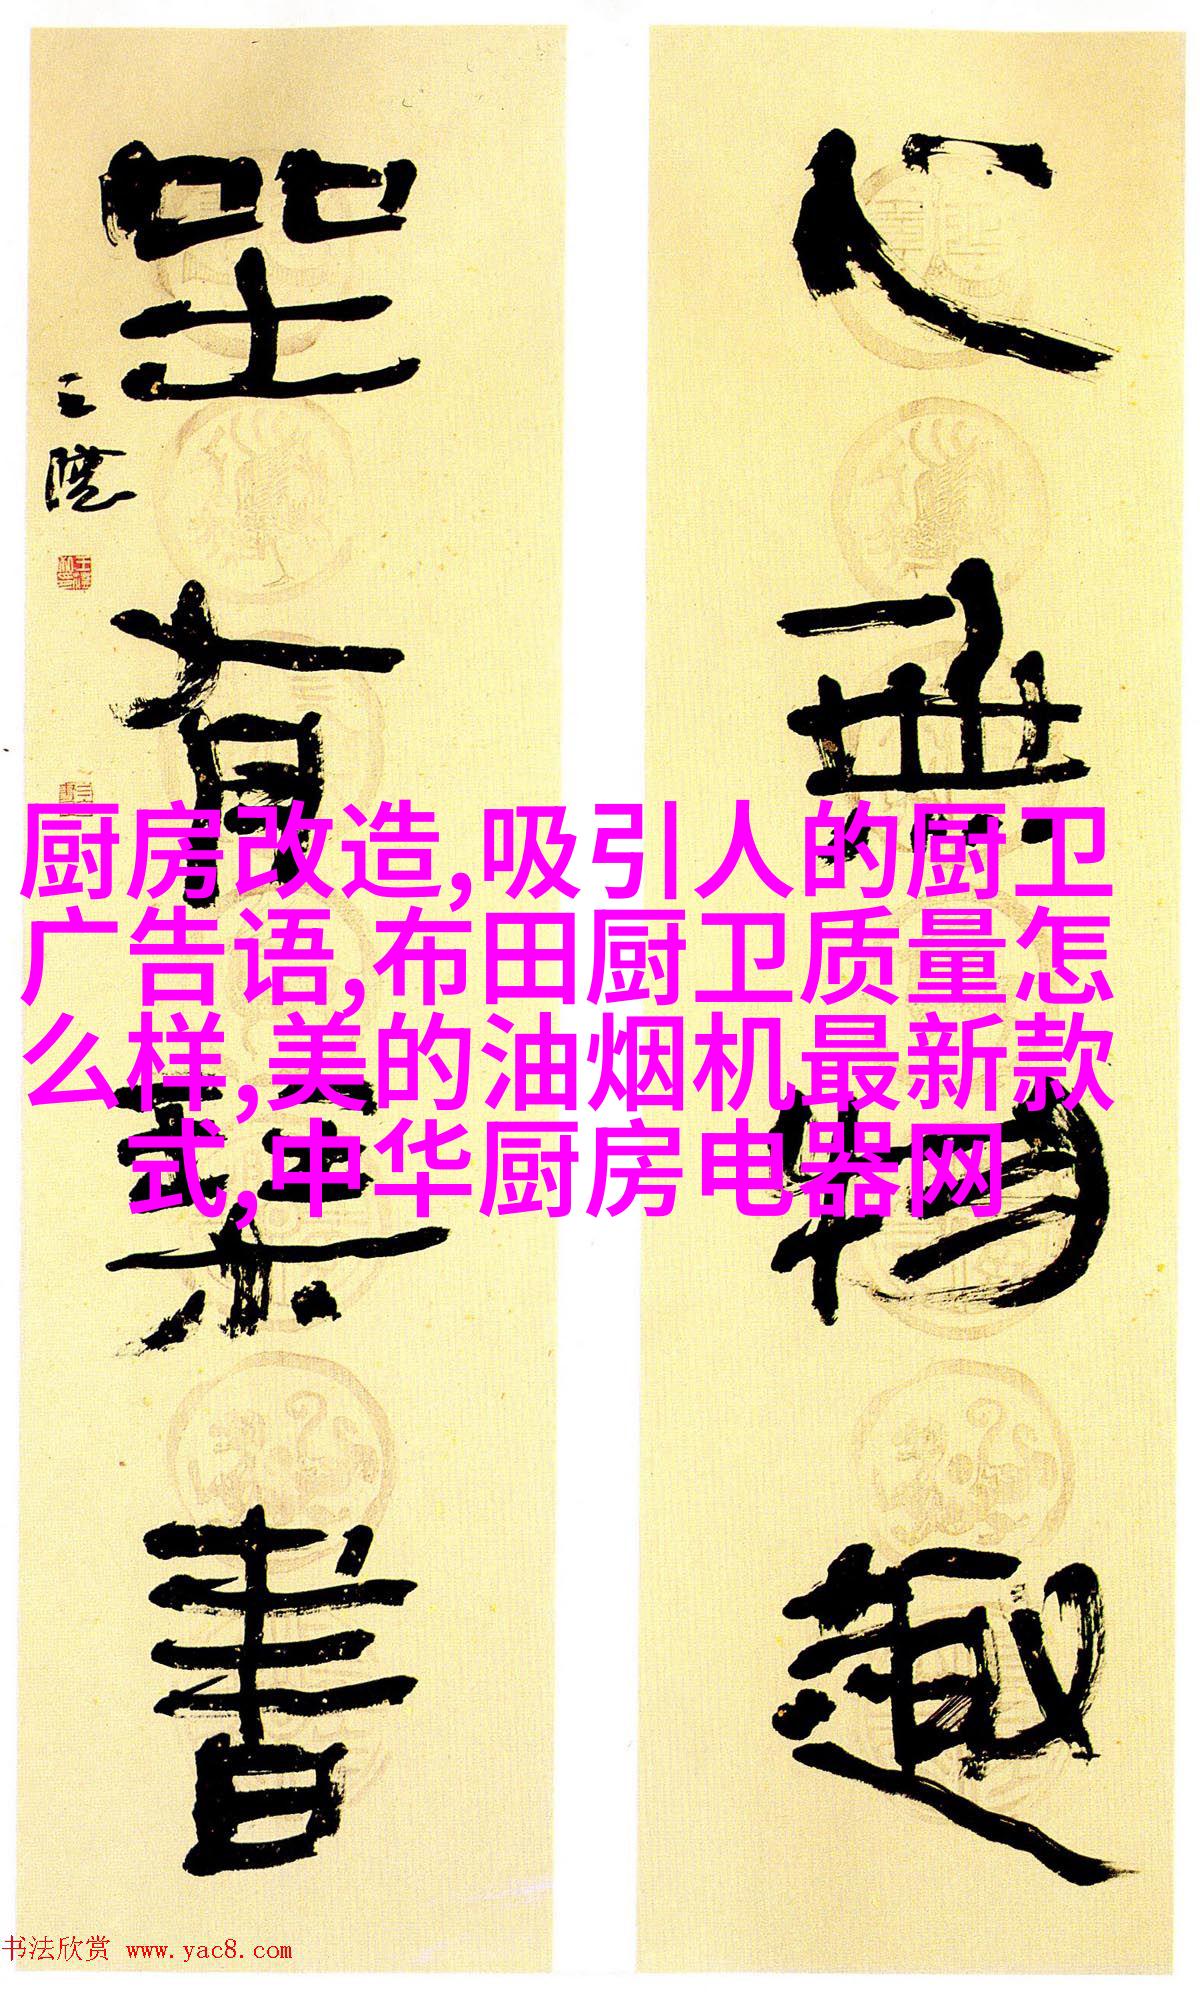 心無物趣
坐有琴書
厨房改造,吸引人的厨卫
广告语,布田厨卫质量怎
么样,美的油烟机最新款
式,中华厨房电器网
书法欣赏 www.yac8.com